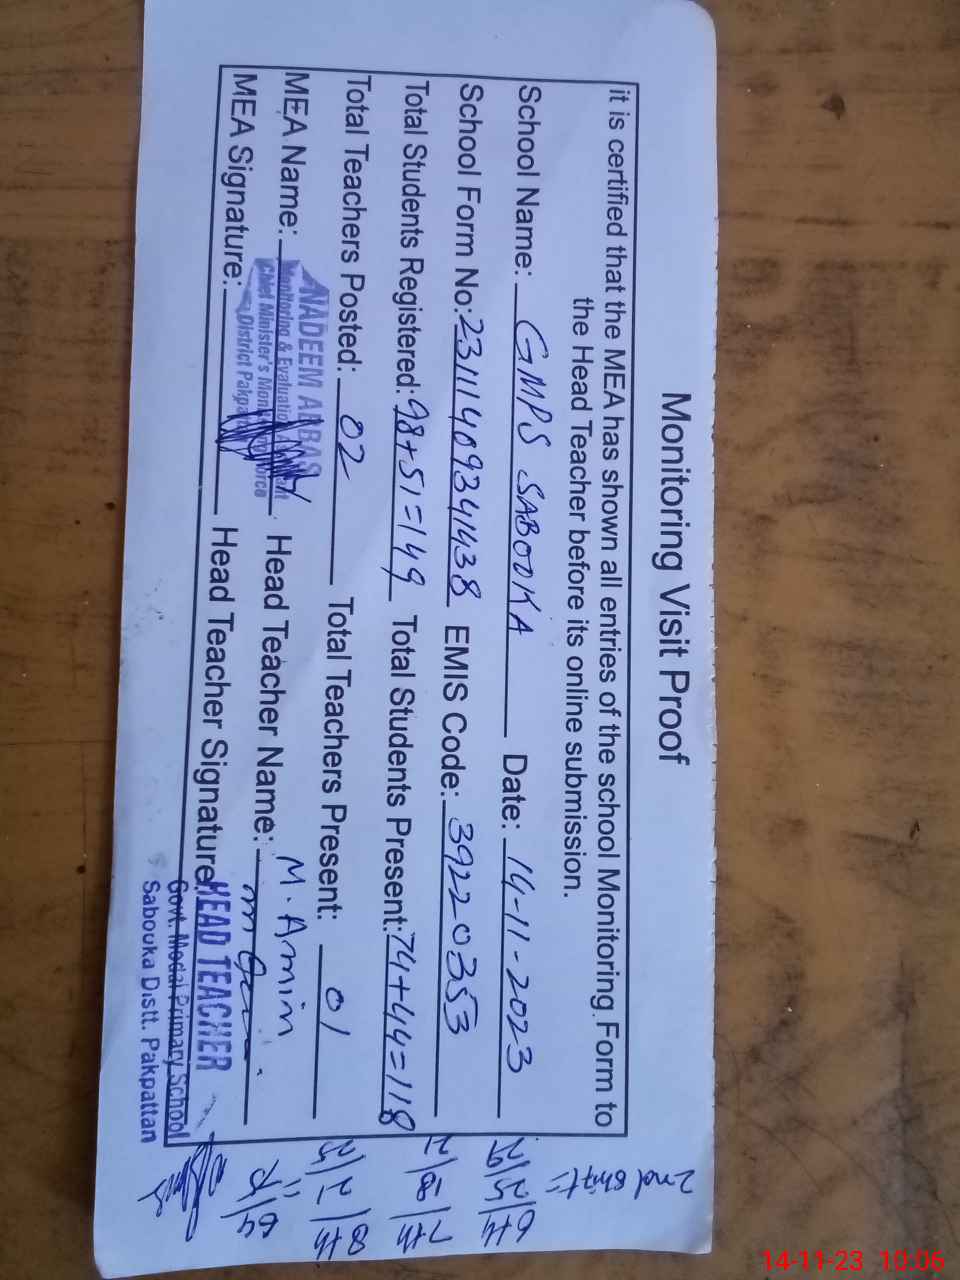 Monitoring Visit Proof
it is certified that the MEA has shown all entries of the school Monitoring Form to
the Head Teacher before its online submission.
School Name: GMPS SABOOKA Date: 14-11-2023
School Form No: 23111409341438 EMIS Code: 39220353
Total Students Registered: 98+51=149 Total Students Present: 74+44=118
Total Teachers Posted: 02 Total Teachers Present: 01
MEA Name: Head Teacher Name: M. Amin
NADEEM ABBAS
Monitoring & Evaluation
Chief Minister's
District
MEA Signature: Head Teacher Signature:
HEAD TEACHER
Govt. Modal Primary School
Sabouka Distt. Pakpattan
2nd shift:
14-11-23 10:06